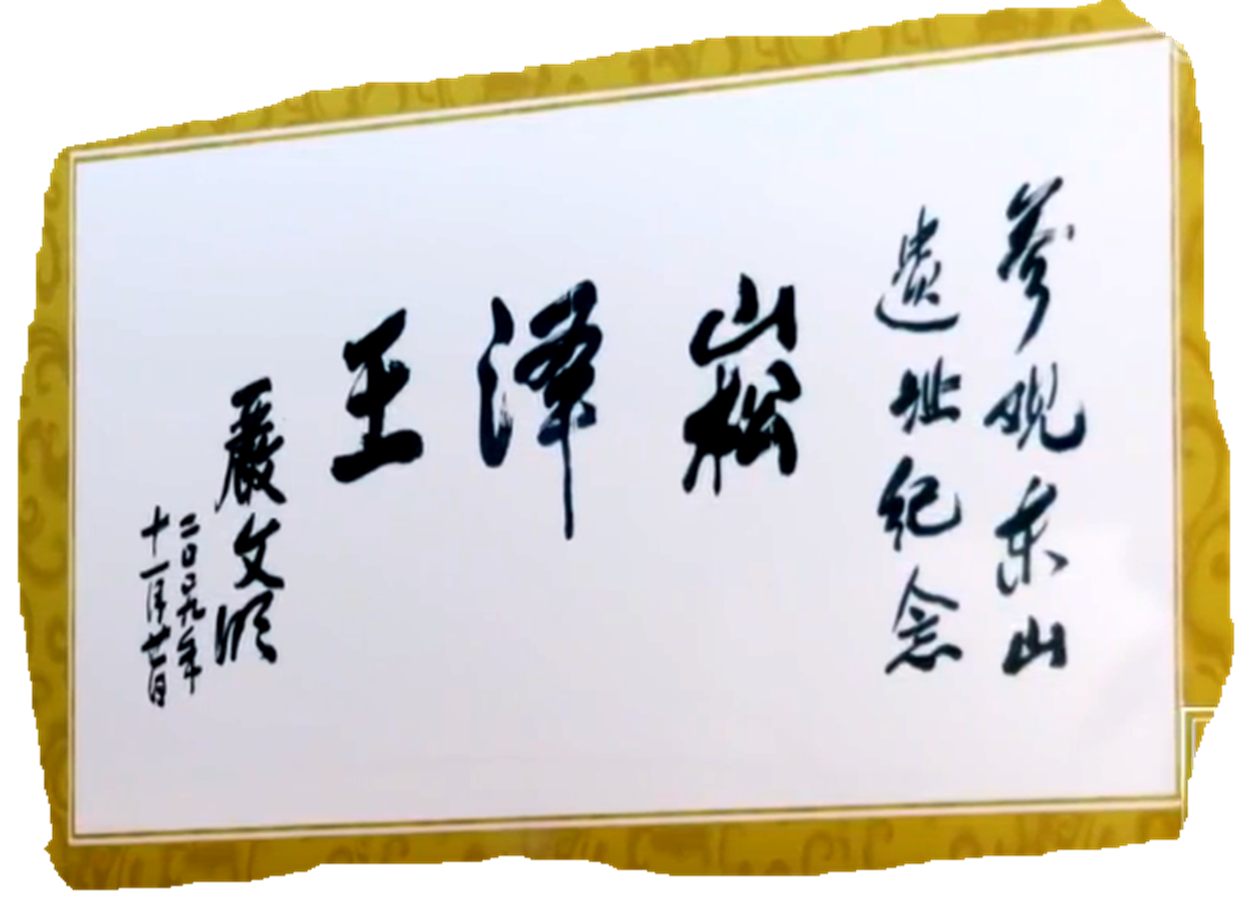 参观东山
遗址纪念
崧泽王
严文明
二〇〇九年
十一月廿一日